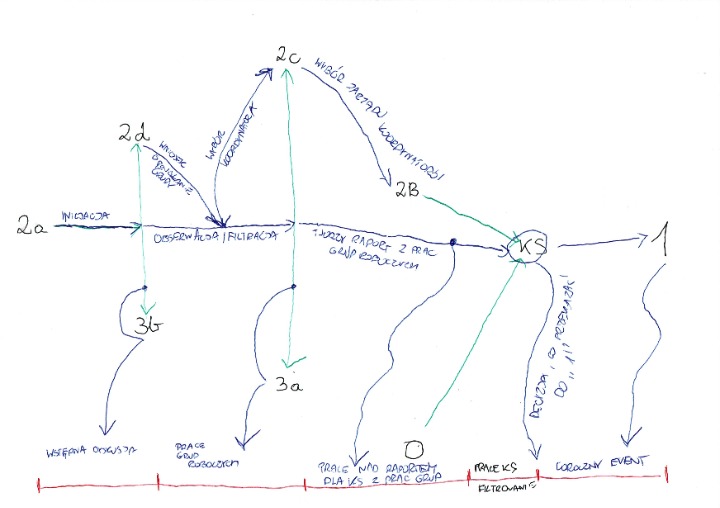 2c
WYBÓR ZARZĄDU
KOORDYNATORÓW
2d
WNIOSEK
O POWOŁANIE
GRUPY
WYBÓR
KOORDYNATORA
2B
2a
INICJACJA
OBSERWACJA / FILTRACJA
RAPORT Z PRAC
GRUP ROBOCZYCH
KS
1
3b
3a
DECYZJA, CO PRZEKAZAĆ
DO ,,1"
0
WSTĘPNA DYSKUSJA
PRACE
GRUP
ROBOCZYCH
PRACE NAD RAPORTEM
DLA KS Z PRAC GRUP
PRACE KS
FILTROWANIE
COROCZNY EVENT